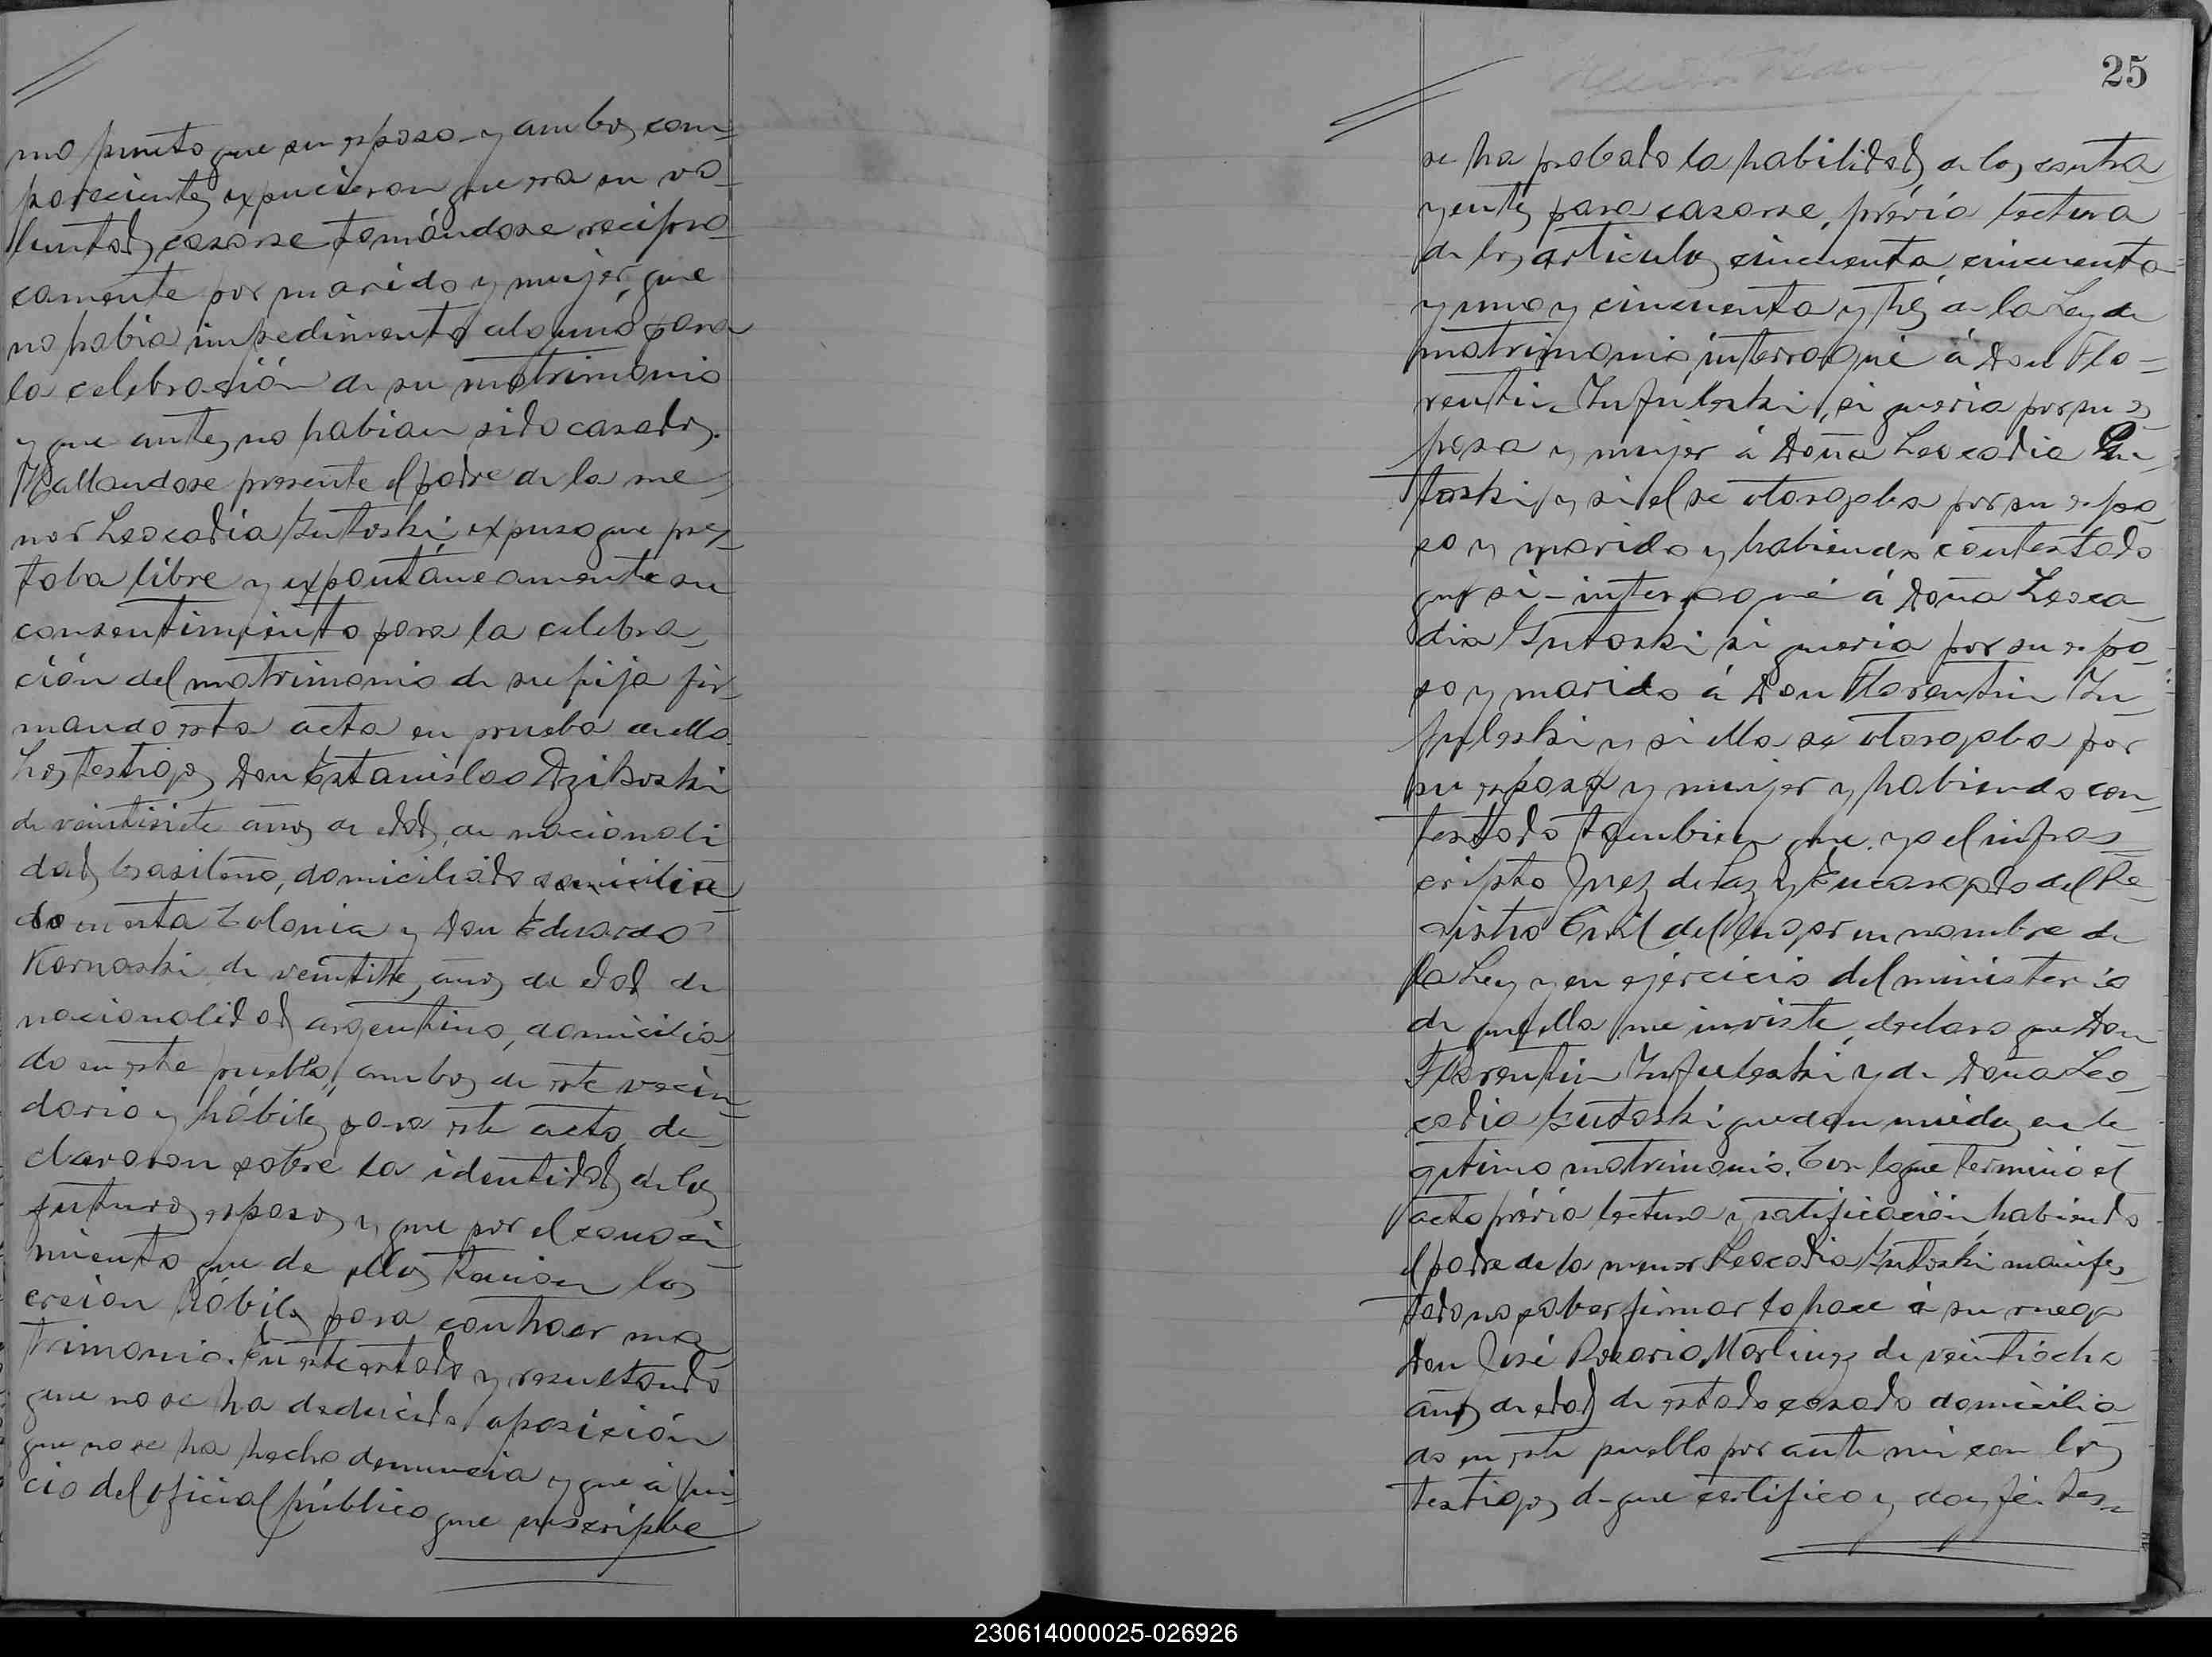 mo punto que su esposo y ambos com=
parecientes expucieron que era su vo-
luntad casarse tomándose recipro-
camente por marido y mujer, que
no habia impedimento alguno para
la celebración de su matrimonio
y que antes no habian sido casados.
Hallandose presente el padre de la me-
nor Leocadia Gutoski, expuso que pres-
taba libre y expontáneamente su
consentimiento para la celebra-
ción del matrimonio de su hija fir-
mando esta acta en prueba de ello.
Los testigos Don Estanislao Dzikoski
de veintisiete años de edad, de nacionali
dad brasileño, domiciliado domicilia
do en esta Colonia y Don Eduardo
Karnoski de veintitres años de edad de
nacionalidad argentino, domicilia-
do en este pueblo, ambos de este vecin-
dario y hábiles para este acto, de-
clararon sobre la identidad de los
futuros esposos y que por el conoci-
miento que de ellos tenian los
creian hábiles para contraer ma-
trimonio. En este estado y resultando
que no se ha deducido oposición
que no se ha hecho denuncia y que á jui-
cio del oficial público que suscripbe
25
se ha probado la habilidad de los contra-
yentes para casarse, prévia lectura
de los articulos cincuenta, cincuenta
y uno y cincuenta y tres de la Ley de
matrimonio, interrogué á Don Flo-
rentin Zufuleski, si queria por su es-
posa y mujer á Doña Leocadia Gu-
toski y si el se otorgaba por su espo-
so y marido y habiendo contestado
que si - interrogué á Doña Leoca-
dia Gutoski si queria por su espo-
so y marido á Don Florentin Zu-
fuleski y si ella se otorgaba por
su esposa y mujer y habiendo con-
testado tambien que yo el infras-
cripto Juez de Paz y Encargado del Re-
gistro Civil del lugar en nombre de
la Ley y en ejercicio del ministerio
de que ella me inviste, declaro que Don
Florentin Zufuleski y de Doña Leo-
cadia Gutoski quedan unidos en le-
gitimo matrimonio. Con lo que terminó el
acto prévia lectura y ratificación habiendo
el padre de la menor Leocadia Gutoski manifes-
tado no saber firmar lo hace á su ruego
Don José Rosario Martinez de veintiocho
años de edad de estado casado domicilia-
do en este pueblo por ante mi con los
testigos de que certifico y doy fé. Tes-
230614000025-026926